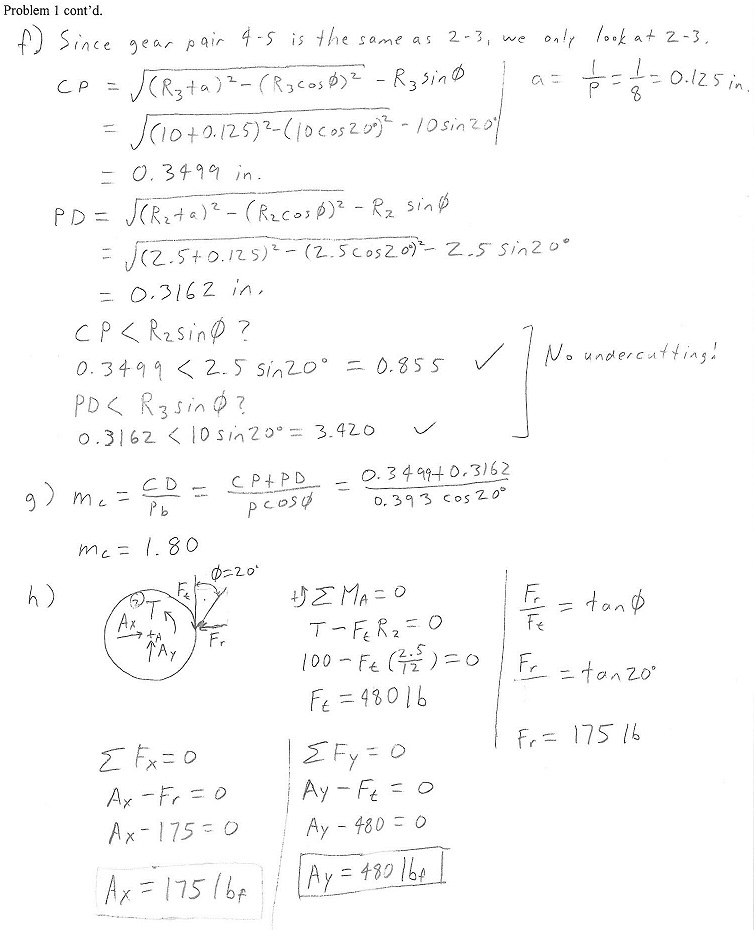 Problem 1 cont'd.
f) Since gear pair 4-5 is the same as 2-3, we only look at 2-3.
CP = √(R₃+a)²-(R₃cosØ)² - R₃sinØ
a = 1/P = 1/8 = 0.125 in.
= √(10+0.125)²-(10cos20°)² - 10sin20°
= 0.3499 in.
PD = √(R₂+a)²-(R₂cosØ)² - R₂ sinØ
= √(2.5+0.125)²-(2.5cos20°)² - 2.5 sin20°
= 0.3162 in.
CP < R₂sinØ ?
0.3499 < 2.5 sin20° = 0.855 ✓
No undercutting!
PD < R₃sinØ ?
0.3162 < 10sin20° = 3.420 ✓
g) mc = CD/Pb = CP+PD/pcosØ = 0.3499+0.3162/0.393 cos20°
mc = 1.80
h)
Ø=20°
Ft
2
T
Ax
+A
Ay
Fr
+↺ΣMA = 0
T - FtR₂ = 0
100 - Ft (2.5/12) = 0
Ft = 480 lb
Fr/Ft = tanØ
Fr/ = tan20°
Fr = 175 lb
ΣFx = 0
Ax - Fr = 0
Ax - 175 = 0
Ax = 175 lbf
ΣFy = 0
Ay - Ft = 0
Ay - 480 = 0
Ay = 480 lbf